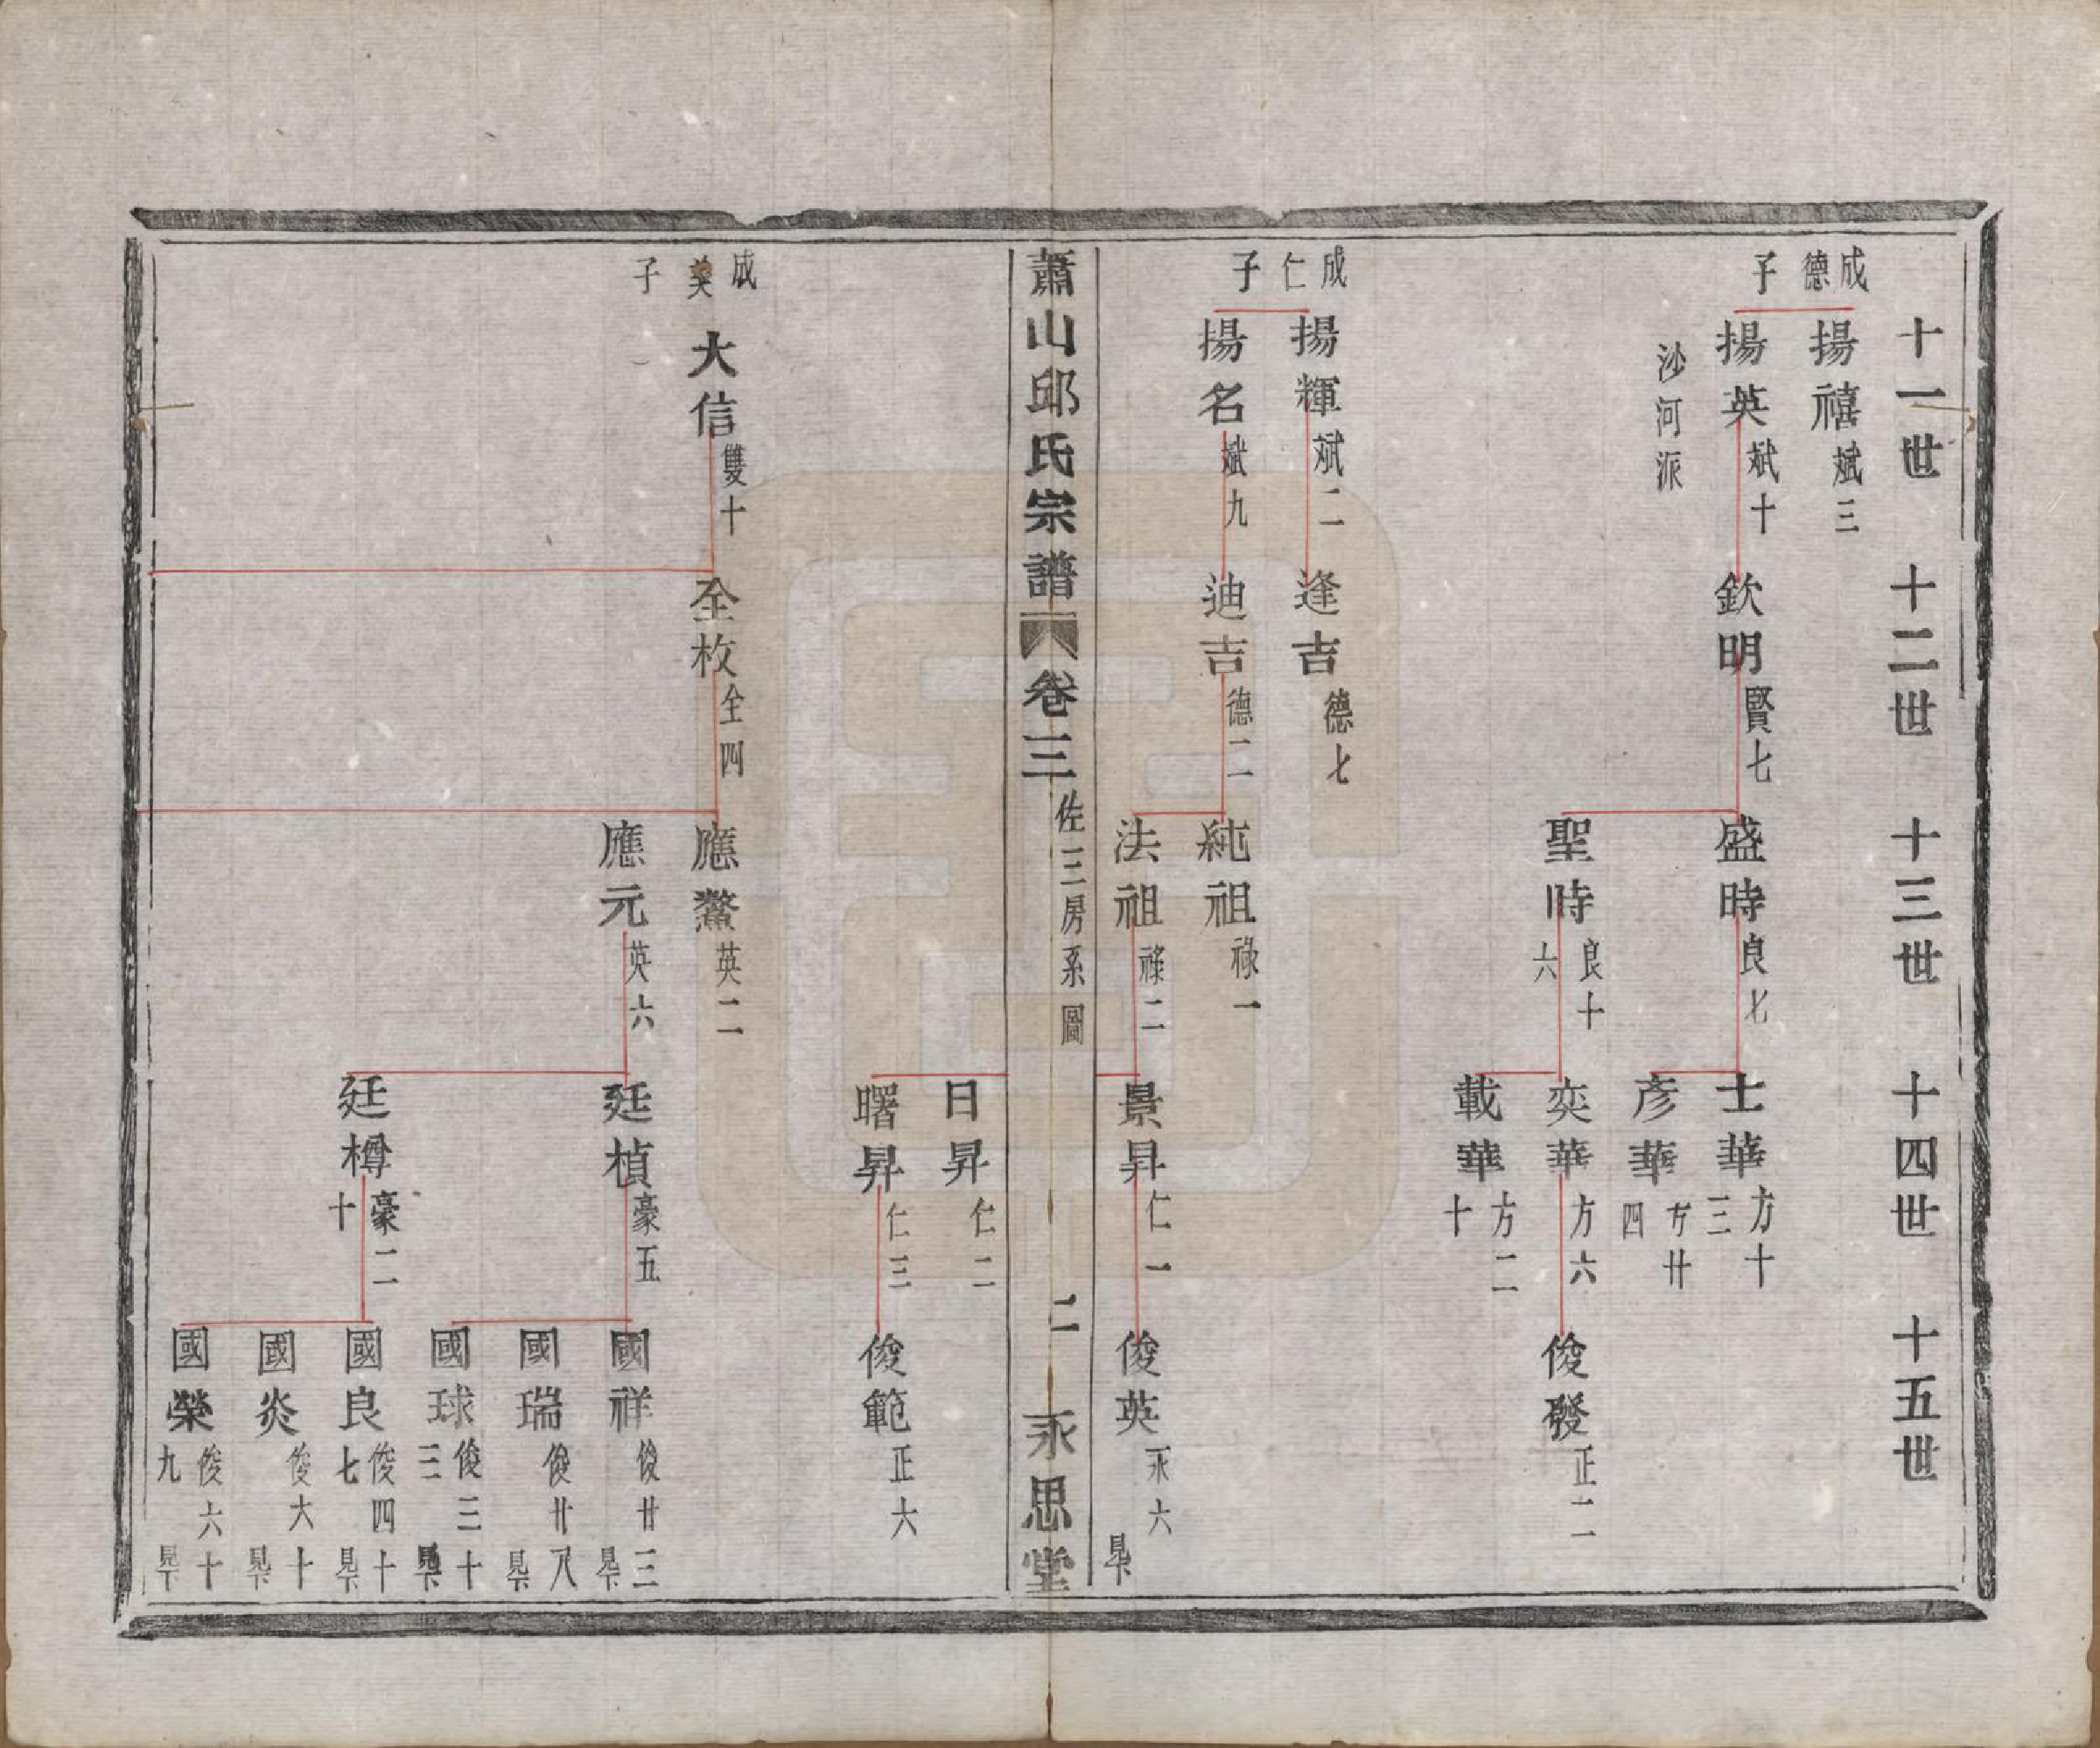 十一世
十二世
十三世
十四世
十五世
成德子
揚禧斌三
揚英斌十
沙河派
欽明賢七
盛時良七
聖時良十六
士華方十三
彥華方廿四
奕華方六
載華方二十
俊發正二
成仁子
揚輝斌二
揚名斌九
逢吉德七
迪吉德二
純祖祿一
法祖祿二
景昇仁一
俊英永六
蕭山邱氏宗譜
卷三
佐三房系圖
二
永思堂
日昇仁二
曙昇仁三
俊範正六
成美子
大信雙十
全枚全四
應鰲英二
應元英六
廷楨豪五
廷樽豪二十
國祥俊廿三
國瑞俊廿八
國球俊三十三
國良俊四十七
國炎俊六十
國榮俊六十九